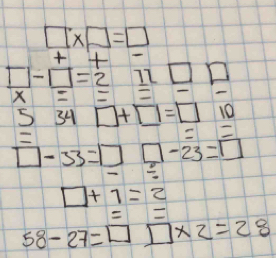 □ × □ = □
+ + -
□ - □ = 2 11 □ □
× = = = - -
5 34 □ + □ = □ 10
= = =
□ - 33 = □ ÷ □ - 23 = □
- =
□ + 7 = 2
= =
58 - 27 = □ □ × 2 = 28